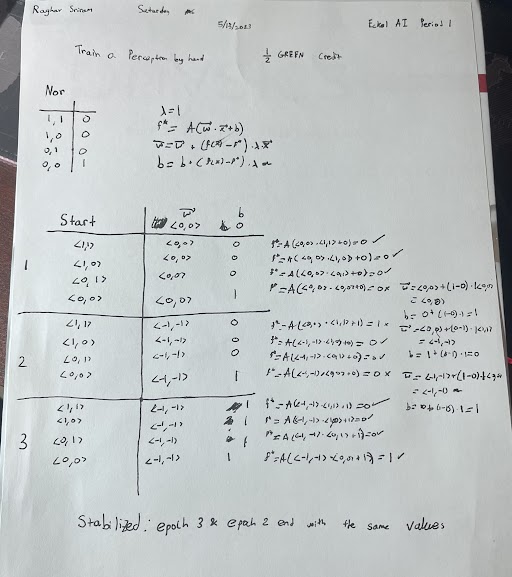 Raghav Sriram Saturday
5/13/2023
Eckel AI Period 1
Train a Perceptron by hand ½ GREEN Credit
Nor
1,1 0
1,0 0
0,1 0
0,0 1
λ=1
f* = A(w·x+b)
w = w + (f(x) - f*)·λ x
b = b + (f(x) - f*)·λ
Start w b
<0,0> 0
1
<1,1> <0,0> 0 f*=A(<0,0>·<1,1>+0)=0 ✓
<1,0> <0,0> 0 f*=A(<0,0>·<1,0>+0)=0 ✓
<0,1> <0,0> 0 f*=A(<0,0>·<0,1>+0)=0 ✓
<0,0> <0,0> 1 f*=A(<0,0>·<0,0>+0)=0 x w=<0,0>+(1-0)·1<0,0>
=<0,0>
b=0+(1-0)·1=1
2
<1,1> <-1,-1> 0 f*=A(<0,0>·<1,1>+1)=1 x w=<0,0>+(0-1)·1<1,1>
=<-1,-1>
b=1+(0-1)·1=0
<1,0> <-1,-1> 0 f*=A(<-1,-1>·<1,0>+0)=0 ✓
<0,1> <-1,-1> 0 f*=A(<-1,-1>·<0,1>+0)=0 ✓
<0,0> <-1,-1> 1 f*=A(<-1,-1>·<0,0>+0)=0 x w=<-1,-1>+(1-0)·1<0,0>
=<-1,-1>
b=0+(1-0)·1=1
3
<1,1> <-1,-1> 1 f*=A(<-1,-1>·<1,1>+1)=0 ✓
<1,0> <-1,-1> 1 f*=A(<-1,-1>·<1,0>+1)=0 ✓
<0,1> <-1,-1> 1 f*=A(<-1,-1>·<0,1>+1)=0 ✓
<0,0> <-1,-1> 1 f*=A(<-1,-1>·<0,0>+1)=1 ✓
Stabilized: epoch 3 & epoch 2 end with the same values